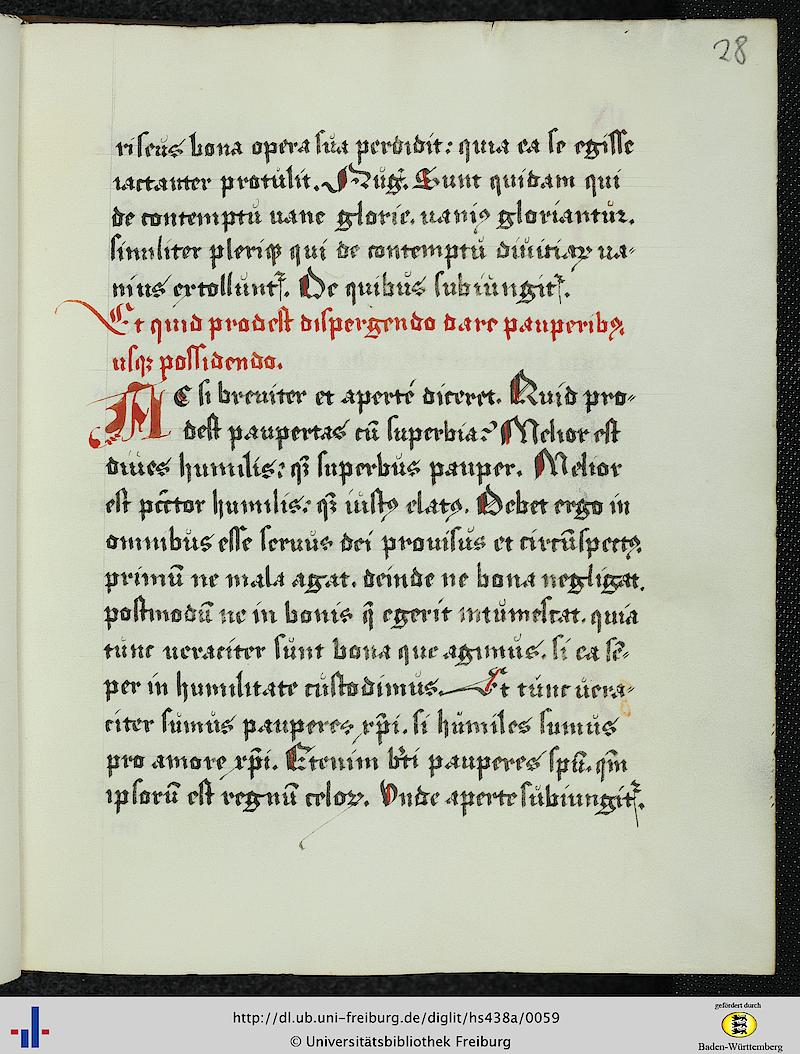 28
riseus bona opera sua perdidit: quia ea se egisse
iactanter protulit. Aug̃. Sunt quidam qui
de contemptu uane glorie. uaniꝰ gloriantur.
similiter pleriqꝫ qui de contemptu diuitiaꝝ ua-
nius extolluntᷣ. De quibus subiungitᷣ.
Et quid prodest dispergendo dare pauperibꝰ
usqꝫ possidendo.
AC si breuiter et aperte diceret. Quid pro-
dest paupertas cū superbia? Melior est
diues humilis: qꝫ superbus pauper. Melior
est pctor humilis: qꝫ iustꝰ elatꝰ. Debet ergo in
omnibus esse seruus dei prouisus et circūspectꝰ.
primū ne mala agat. deinde ne bona negligat.
postmodū ne in bonis q̄ egerit intumescat. quia
tunc ueraciter sunt bona que agimus. si ea sē-
per in humilitate custodimus. Et tunc uera-
citer sumus pauperes xp̄i. si humiles sumus
pro amore xp̄i. Etenim bt̄i pauperes spū. qm̄
ipsorū est regnū celoꝝ. Vnde aperte subiungitᷣ.
http://dl.ub.uni-freiburg.de/diglit/hs438a/0059
© Universitätsbibliothek Freiburg
gefördert durch
Baden-Württemberg